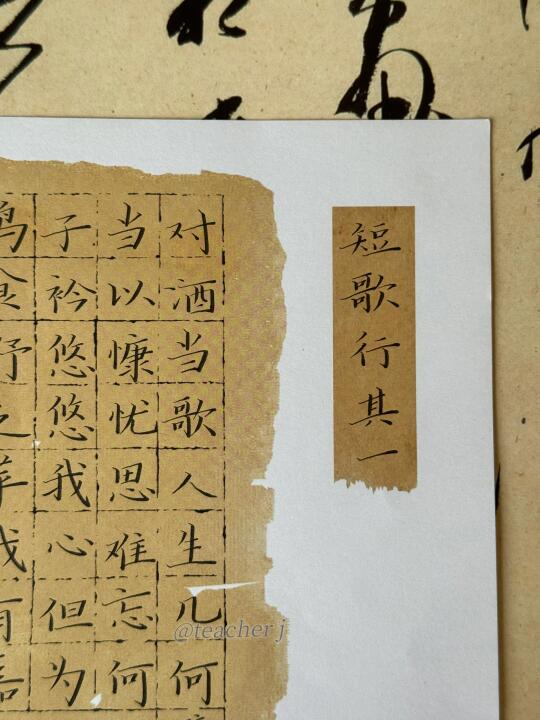 短歌行其一
对酒当歌人生几何
当以慷忧思难忘何
子衿悠悠我心但为
鸣食野之苹我有嘉
@teacher j